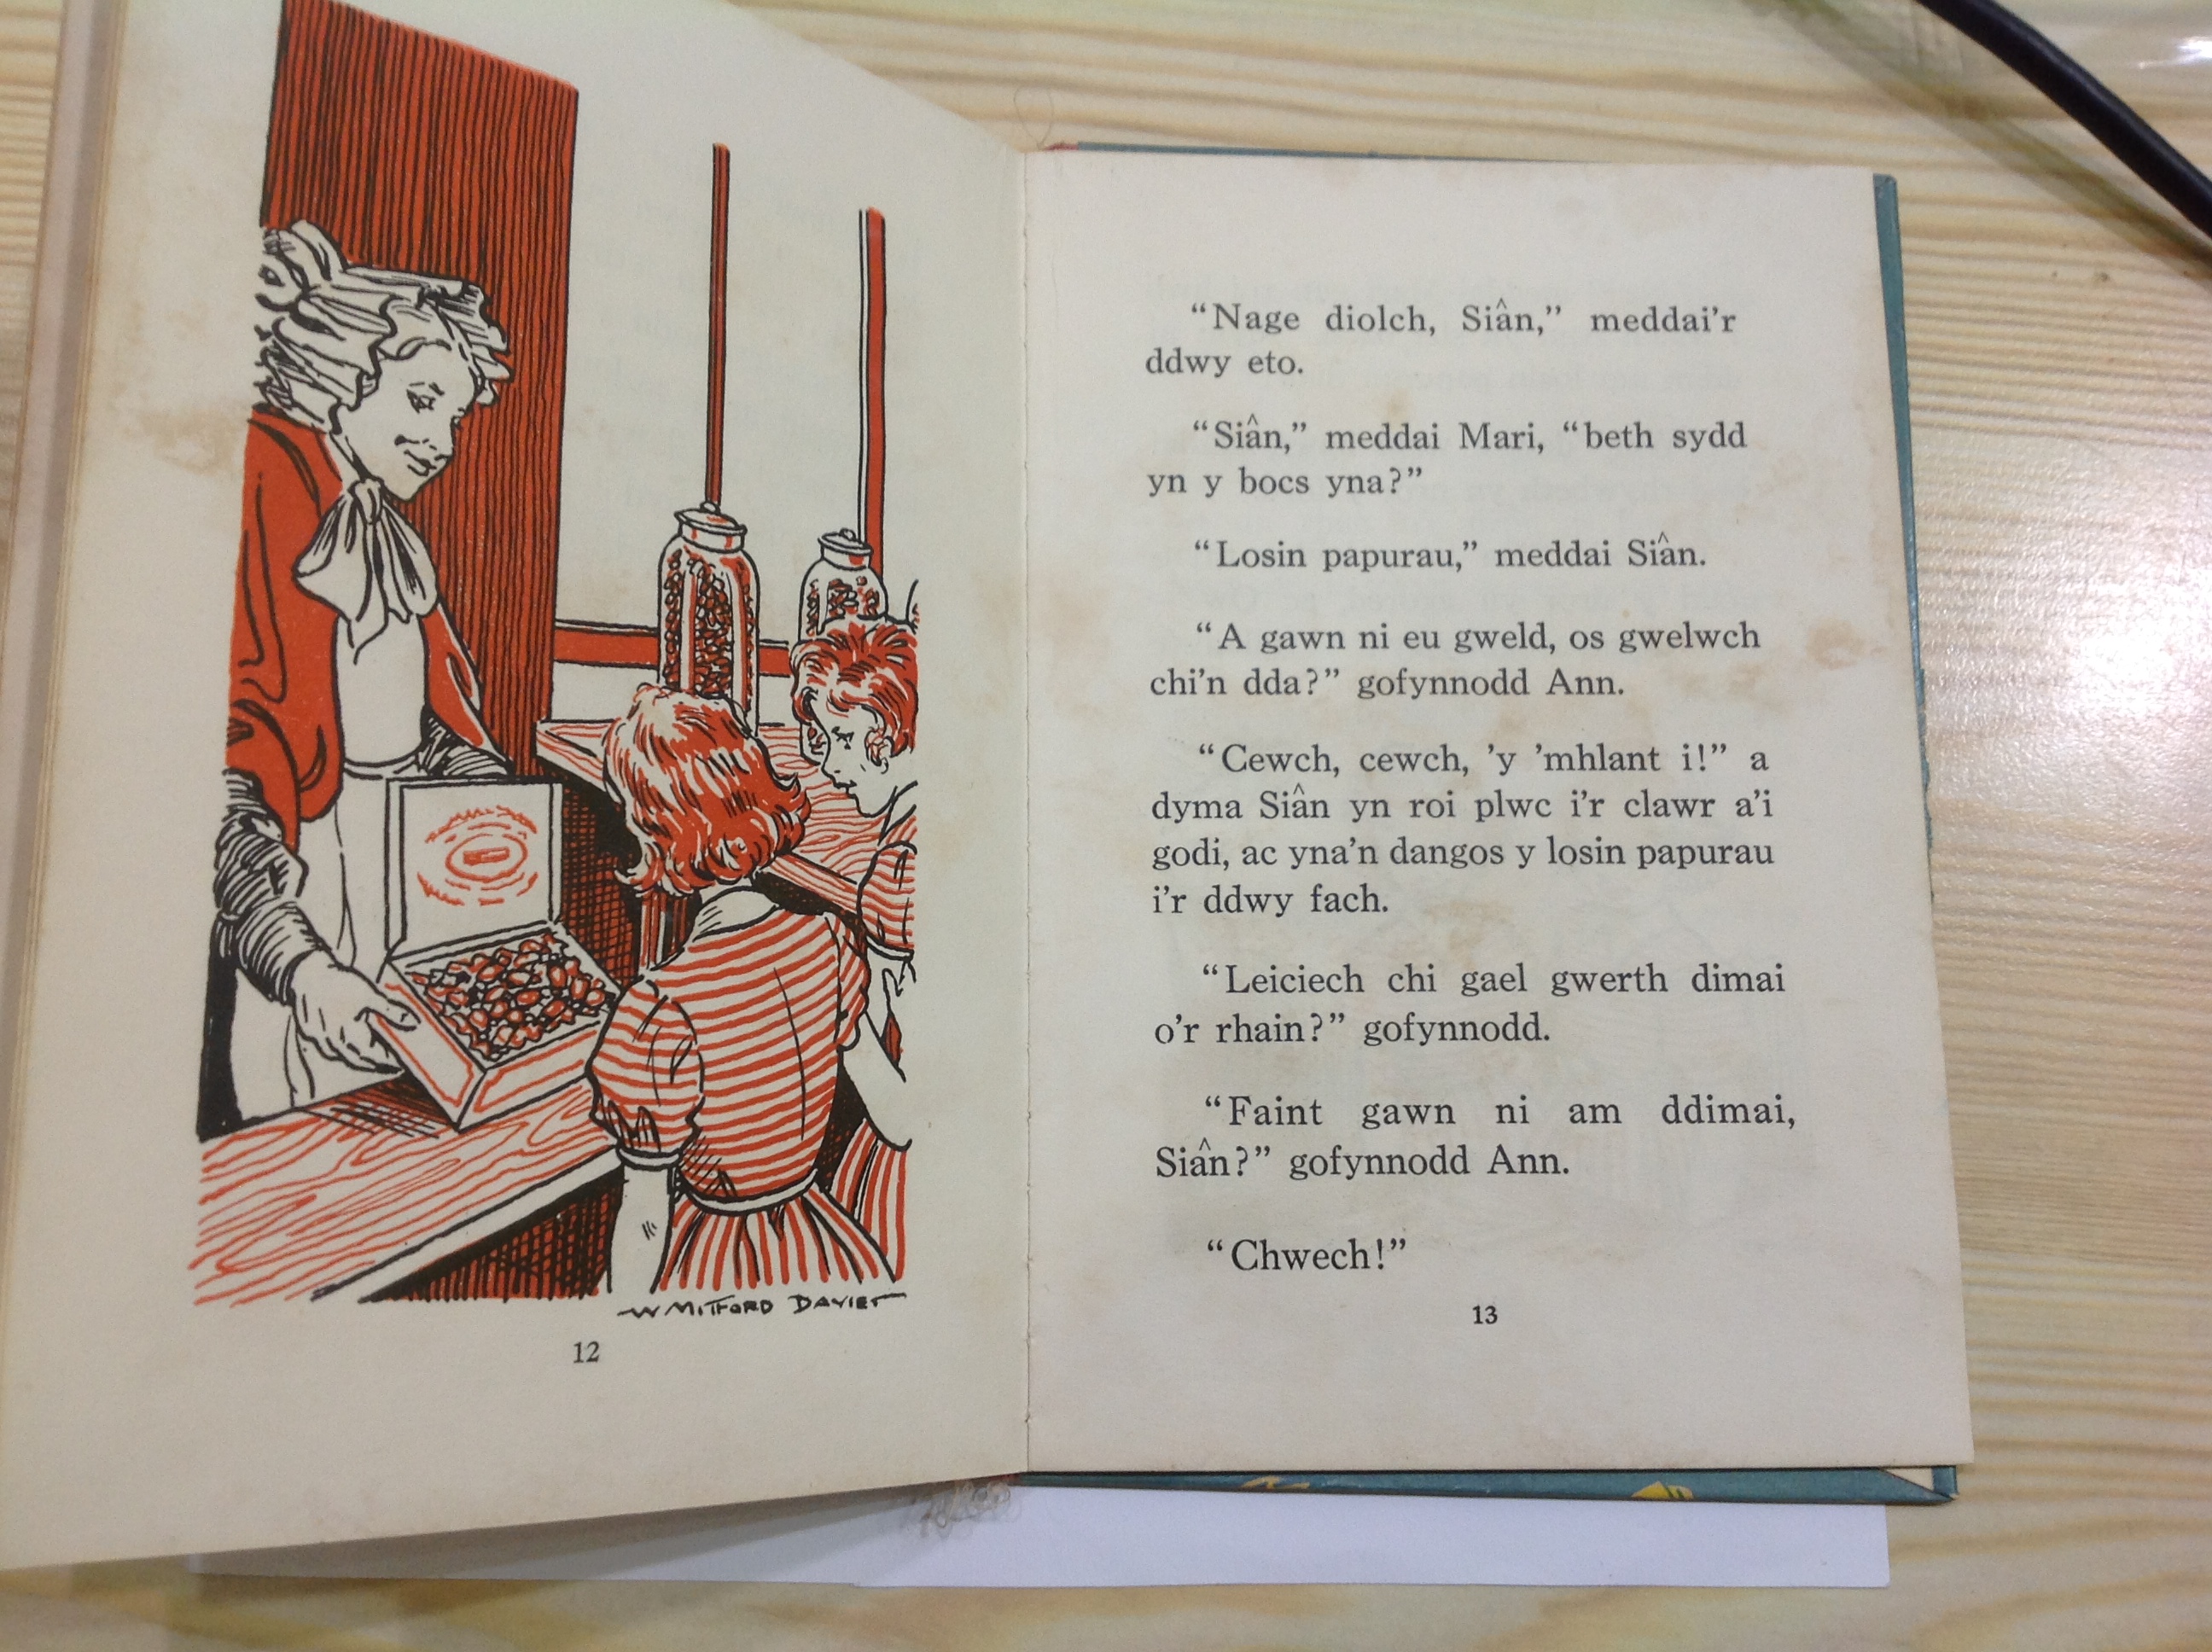 W MITFORD DAVIES
12
“Nage diolch, Siân,” meddai’r
ddwy eto.
“Siân,” meddai Mari, “beth sydd
yn y bocs yna?”
“Losin papurau,” meddai Siân.
“A gawn ni eu gweld, os gwelwch
chi’n dda?” gofynnodd Ann.
“Cewch, cewch, ’y ’mhlant i!” a
dyma Siân yn roi plwc i’r clawr a’i
godi, ac yna’n dangos y losin papurau
i’r ddwy fach.
“Leiciech chi gael gwerth dimai
o’r rhain?” gofynnodd.
“Faint gawn ni am ddimai,
Siân?” gofynnodd Ann.
“Chwech!”
13